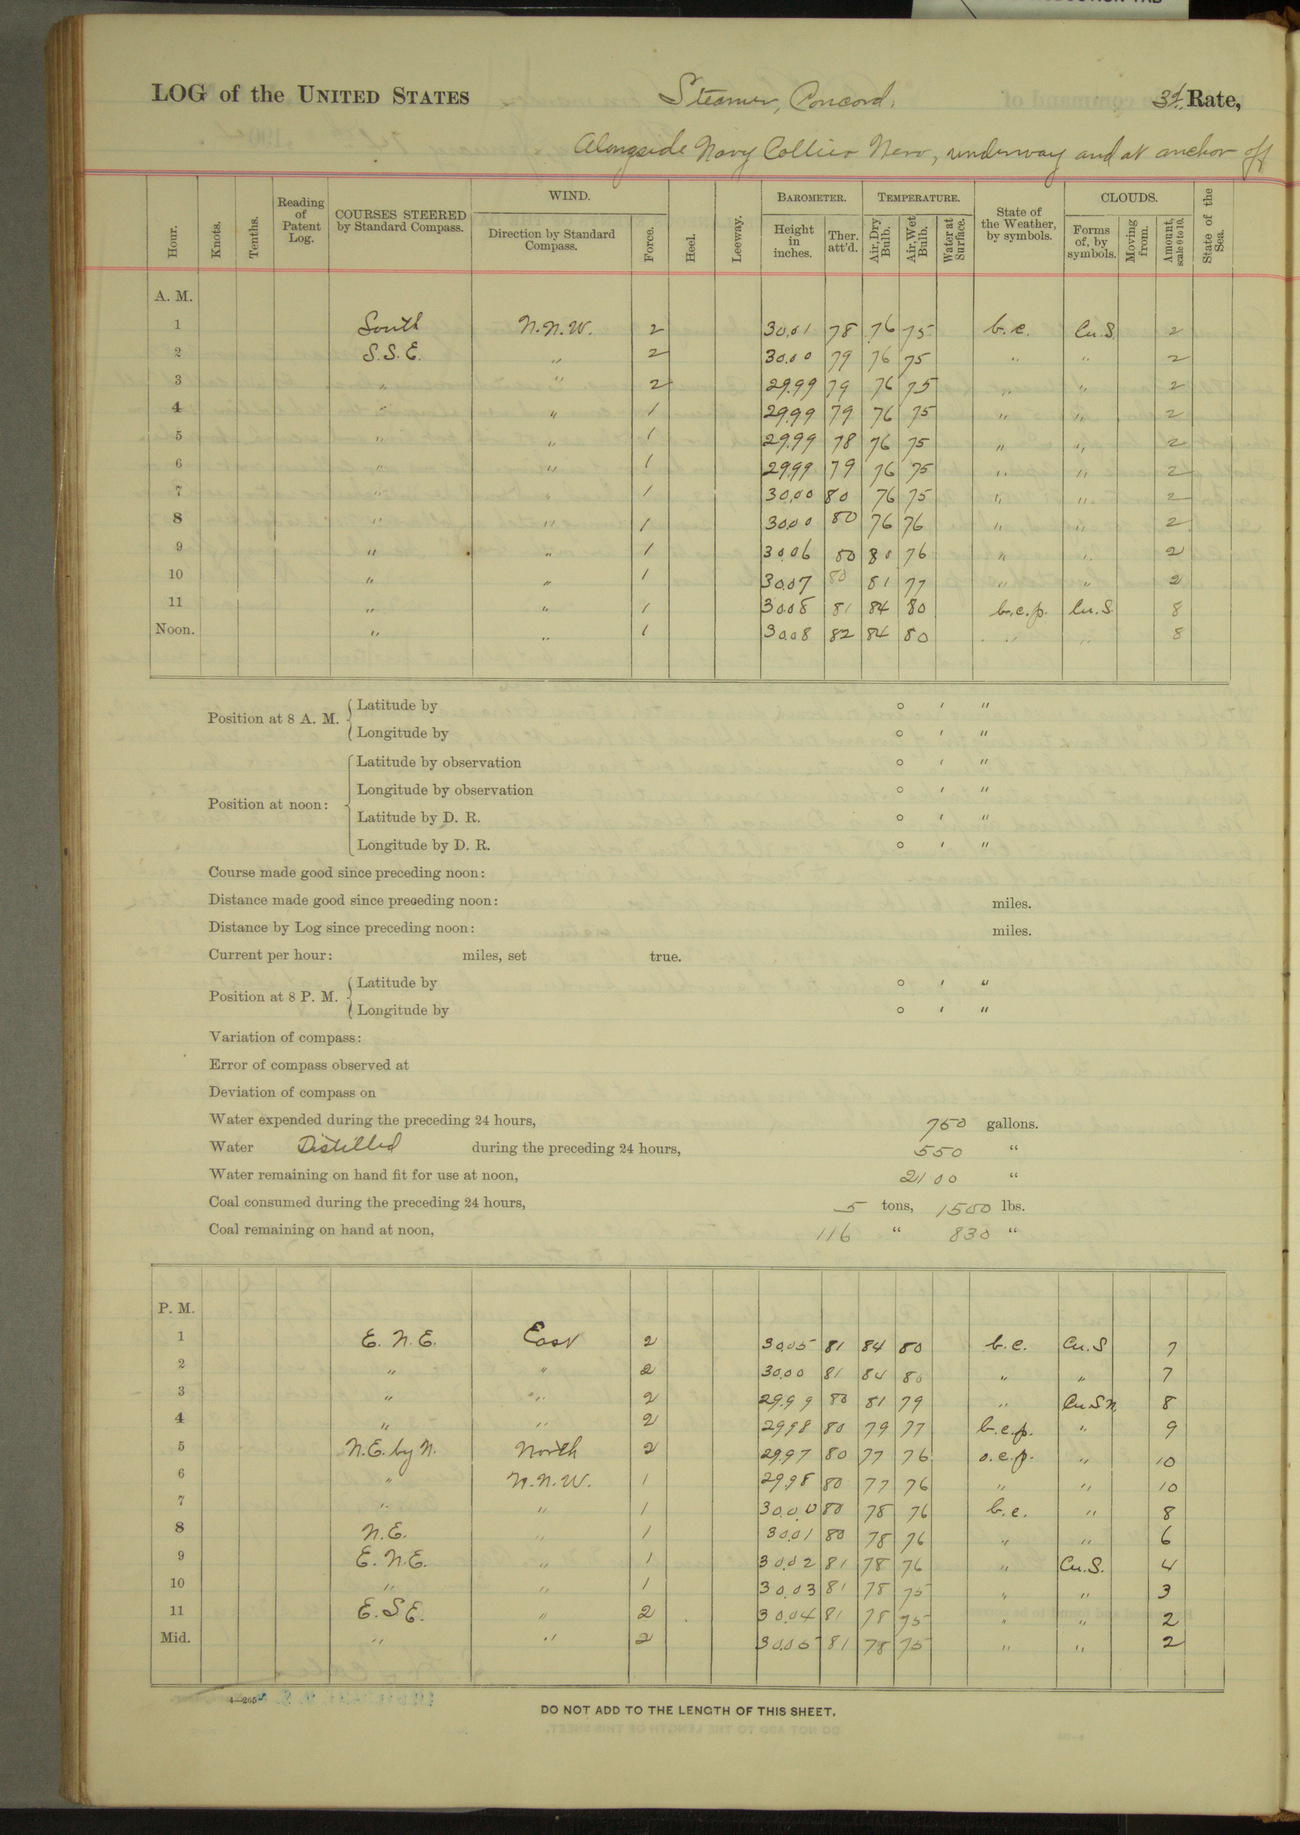 LOG of the UNITED STATES Steamer, Concord, 3d. Rate,
Alongside Navy Collier Nero, underway and at anchor off
Hour. Knots. Tenths. Reading of Patent Log. COURSES STEERED by Standard Compass. WIND. Direction by Standard Compass. Force. Heel. Leeway. BAROMETER. Height in inches. Ther. att'd. TEMPERATURE. Air, Dry Bulb. Air, Wet Bulb. Water at Surface. State of the Weather, by symbols. CLOUDS. Forms of, by symbols. Moving from. Amount, scale 0 to 10. State of the Sea.
A. M.
1 South N.N.W. 2 30.01 78 76 75 b.c. Cu.S. 2
2 S.S.E. " 2 30.00 79 76 75 " " 2
3 " " 2 29.99 79 76 75 " " 2
4 " " 1 29.99 79 76 75 " " 2
5 " " 1 29.99 78 76 75 " " 2
6 " " 1 29.99 79 76 75 " " 2
7 " " 1 30.00 80 76 75 " " 2
8 " " 1 30.00 80 76 76 " " 2
9 " " 1 30.06 80 80 76 " " 2
10 " " 1 30.07 80 81 77 " " 2
11 " " 1 30.08 81 84 80 b.c.p. Cu.S. 8
Noon. " " 1 30.08 82 84 80 " " 8
Position at 8 A. M. Latitude by ° ′ ″
Longitude by ° ′ ″
Position at noon: Latitude by observation ° ′ ″
Longitude by observation ° ′ ″
Latitude by D. R. ° ′ ″
Longitude by D. R. ° ′ ″
Course made good since preceding noon:
Distance made good since preceding noon: miles.
Distance by Log since preceding noon: miles.
Current per hour: miles, set true.
Position at 8 P. M. Latitude by ° ′ ″
Longitude by ° ′ ″
Variation of compass:
Error of compass observed at
Deviation of compass on
Water expended during the preceding 24 hours, 750 gallons.
Water Distilled during the preceding 24 hours, 550 "
Water remaining on hand fit for use at noon, 2100 "
Coal consumed during the preceding 24 hours, 5 tons, 1500 lbs.
Coal remaining on hand at noon, 116 " 830 "
P. M.
1 E.N.E. East 2 30.05 81 84 80 b.c. Cu.S 7
2 " " 2 30.00 81 84 80 " " 7
3 " " 2 29.99 80 81 79 " Cu.S.N. 8
4 " " 2 29.98 80 79 77 b.c.p. " 9
5 N.E. by N. North 2 29.97 80 77 76 o.c.p. " 10
6 " N.N.W. 1 29.98 80 77 76 " " 10
7 " " 1 30.00 80 78 76 b.c. " 8
8 N.E. " 1 30.01 80 78 76 " " 6
9 E.N.E. " 1 30.02 81 78 76 " Cu.S. 4
10 " " 1 30.03 81 78 75 " " 3
11 E.S.E. " 2 30.04 81 78 75 " " 2
Mid. " " 2 30.05 81 78 75 " " 2
DO NOT ADD TO THE LENGTH OF THIS SHEET.